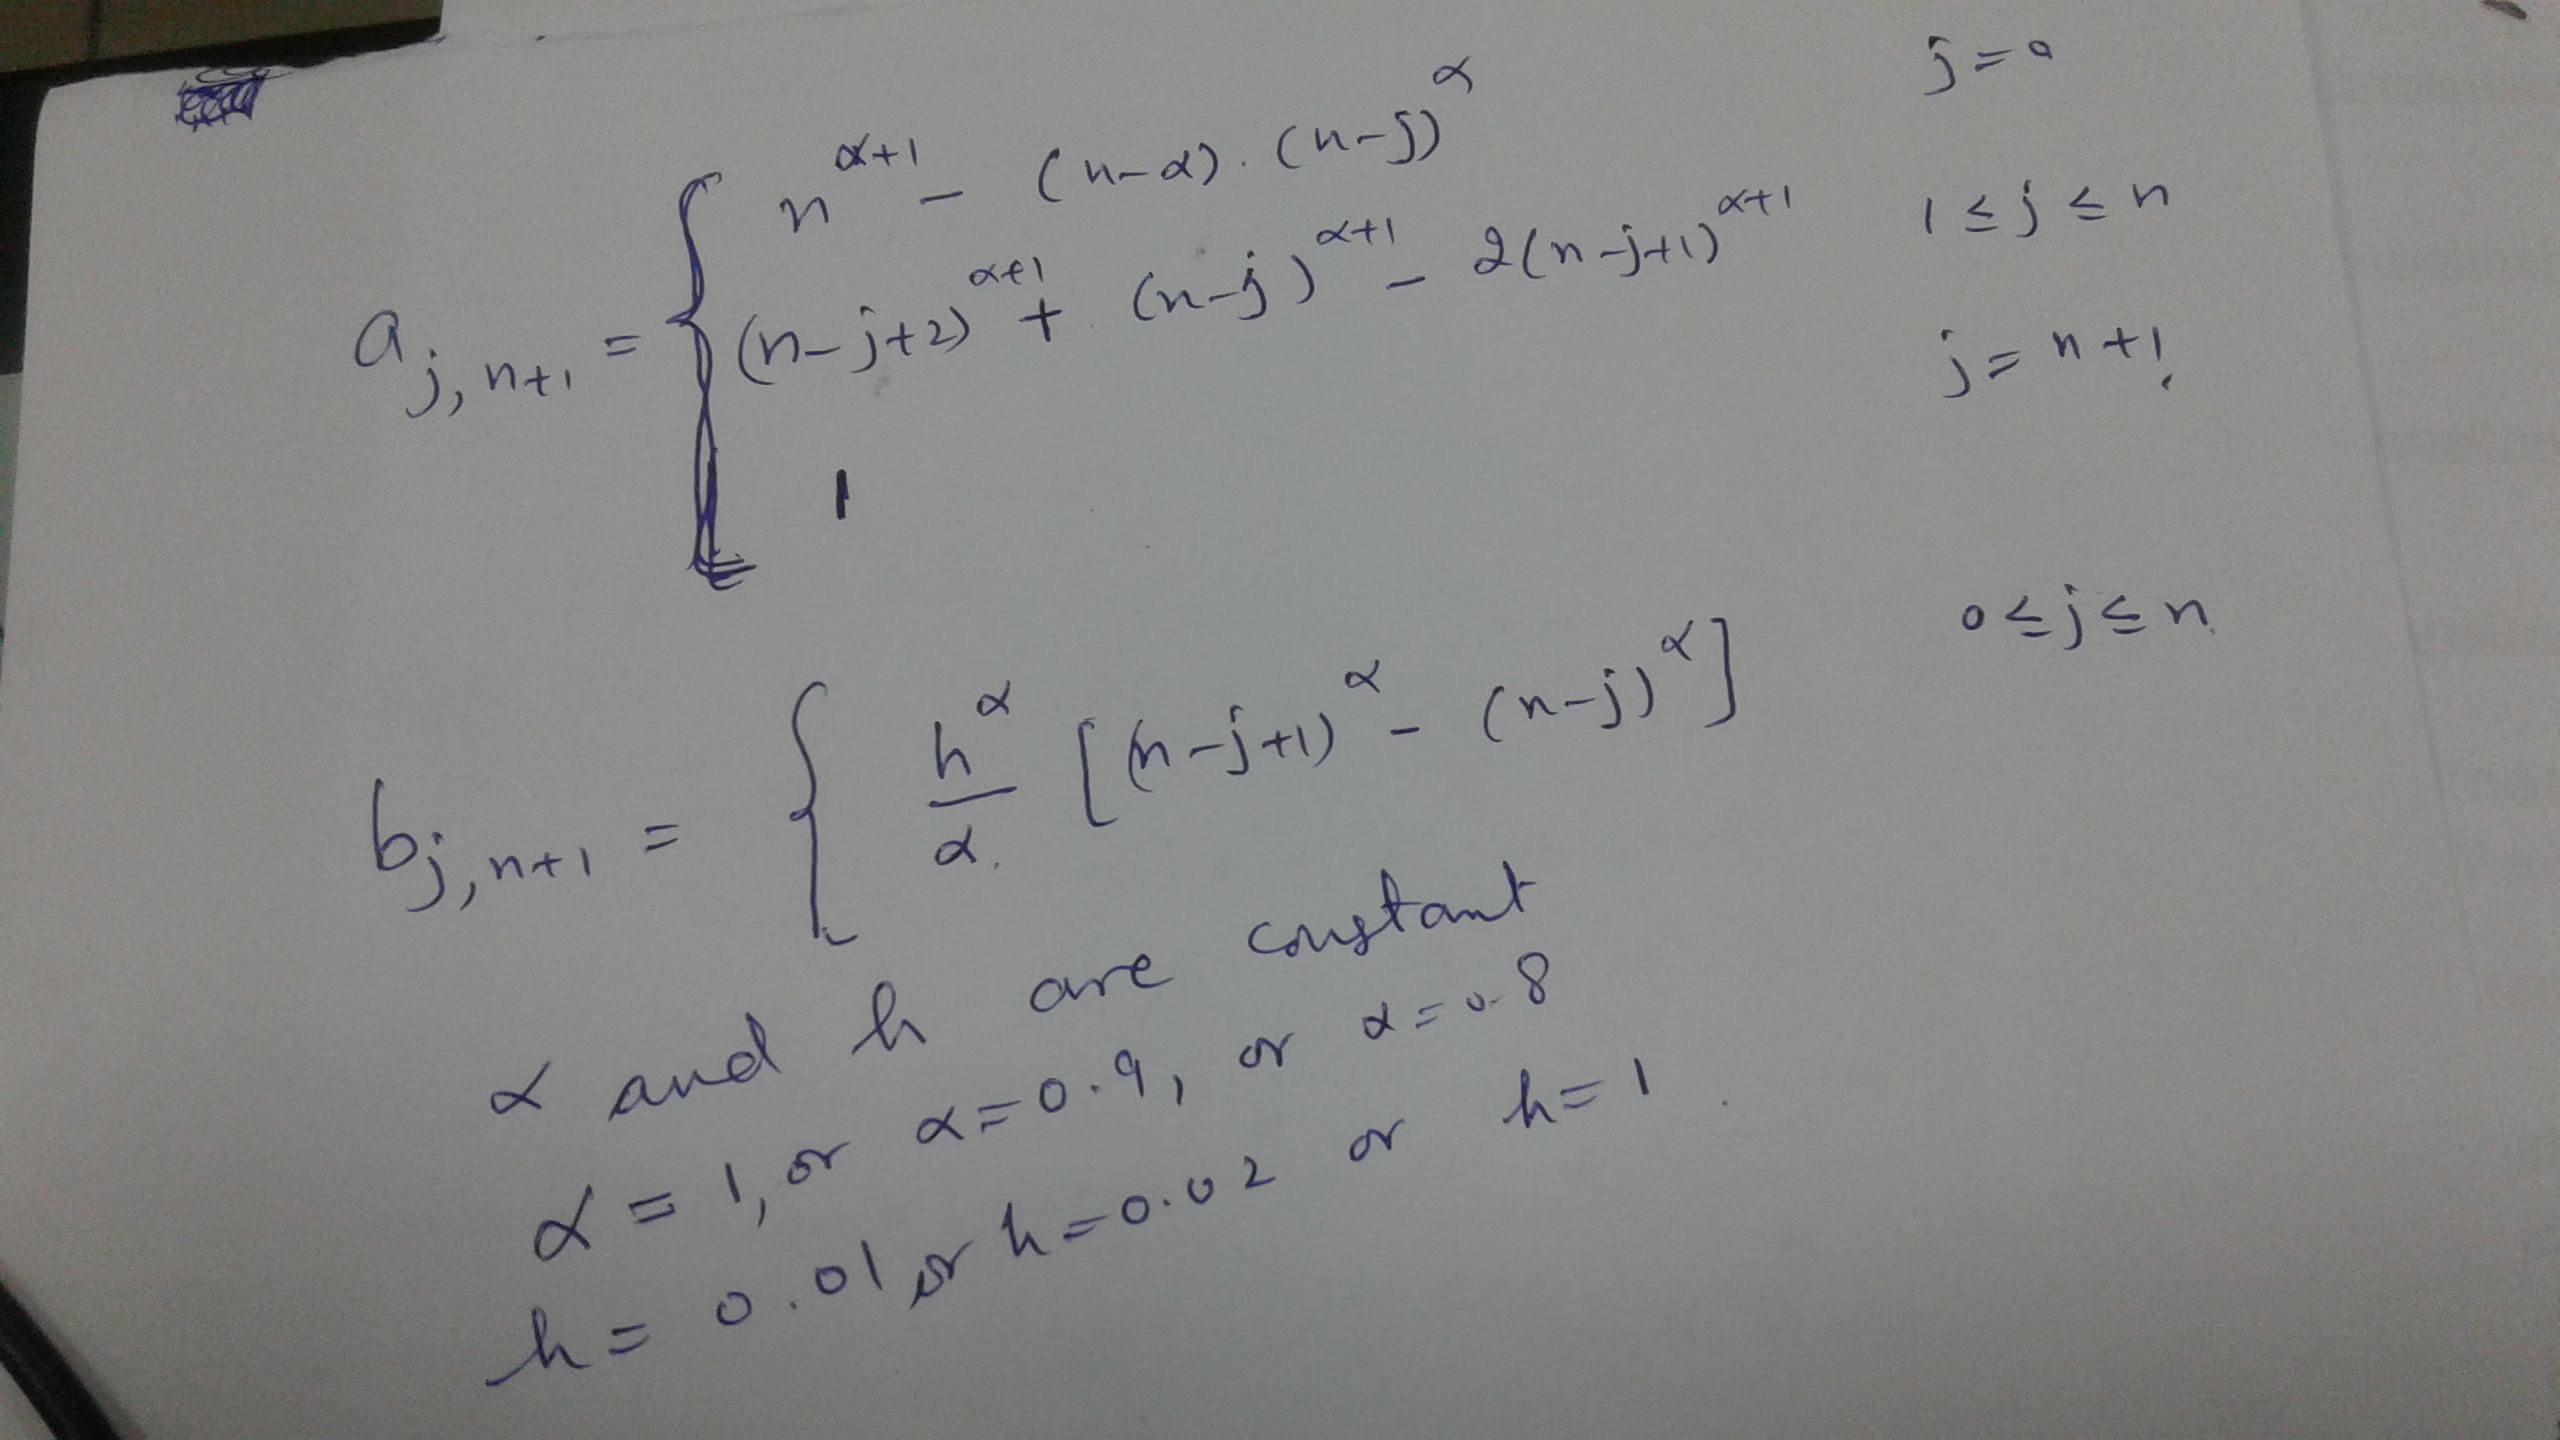 n^{α+1} - (n-α) . (n-j)^α    j=0
a_{j,n+1} = { (n-j+2)^{α+1} + (n-j)^{α+1} - 2(n-j+1)^{α+1}    1≤j≤n
1    j=n+1
b_{j,n+1} = { h^α/α. [(n-j+1)^α - (n-j)^α]    0≤j≤n.
α and h are constant
α = 1, or α=0.9, or α=0.8
h= 0.01 or h=0.02 or h=1.